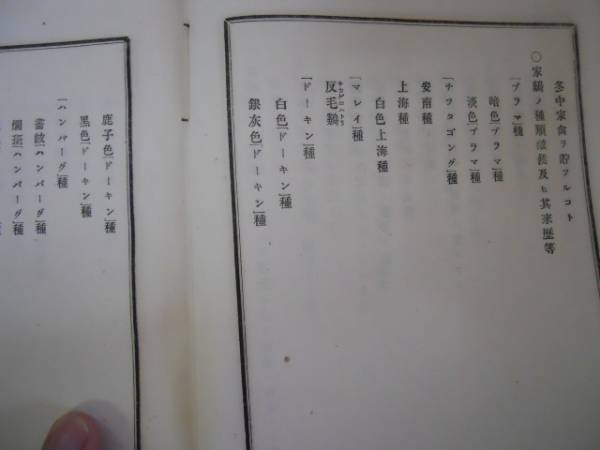 冬中家禽ヲ貯フルコト
○家鷄ノ種類儀表及ヒ其來歷等
「ブラマ」種
暗色「ブラマ」種
淡色「ブラマ」種
「チツタゴング」種
安南種
上海種
白色上海種
「マレイ」種
反毛鷄
「ドーキン」種
白色「ドーキン」種
銀灰色「ドーキン」種
鹿子色「ドーキン」種
黑色「ドーキン」種
「ハンバーグ」種
「ハンバーグ」種
「ハンバーグ」種